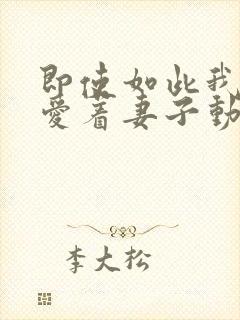 即使如此我
爱着妻子動
李大松